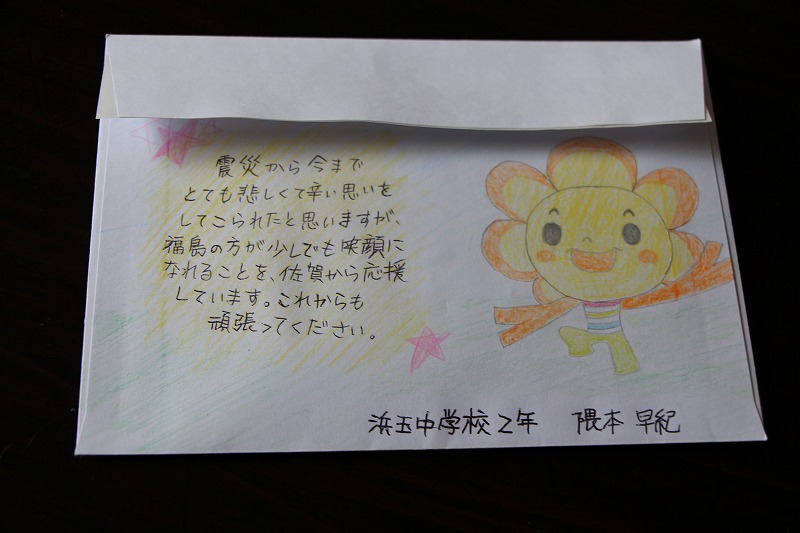 震災から今まで
とても悲しくて辛い思いを
してこられたと思いますが、
福島の方が少しでも笑顔に
なれることを、佐賀から応援
しています。これからも
頑張ってください。
浜玉中学校2年 隈本 早紀